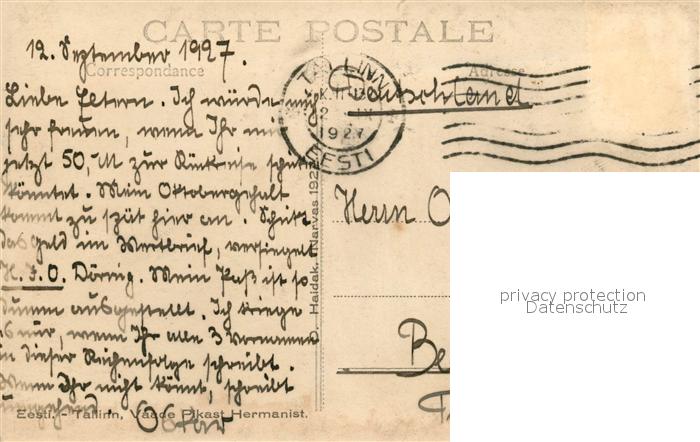 CARTE POSTALE
12. September 1927.
Correspondance
Adresse
TALLINN
1927
EESTI
Deutschland
Liebe Eltern. Ich würde mich
sehr freuen, wenn Ihr mir
jetzt 50,- M zur Rückreise schicken
könntet. Mein Oktobergehalt
kommt zu spät hier an. Schickt
das Geld im Wertbrief, versiegelt
H. J. O. Döring. Mein Paß ist so
dumm ausgestellt. Ich kriege
es nur, wenn Ihr alle 3 Vornamen
in dieser Reihenfolge schreibt.
Wenn Ihr nicht könnt, schreibt
umgehend.
Herrn O
Be
Haidak, Narvas 192
Eesti. - Tallinn, Vaade Pikast Hermanist.
privacy protection
Datenschutz